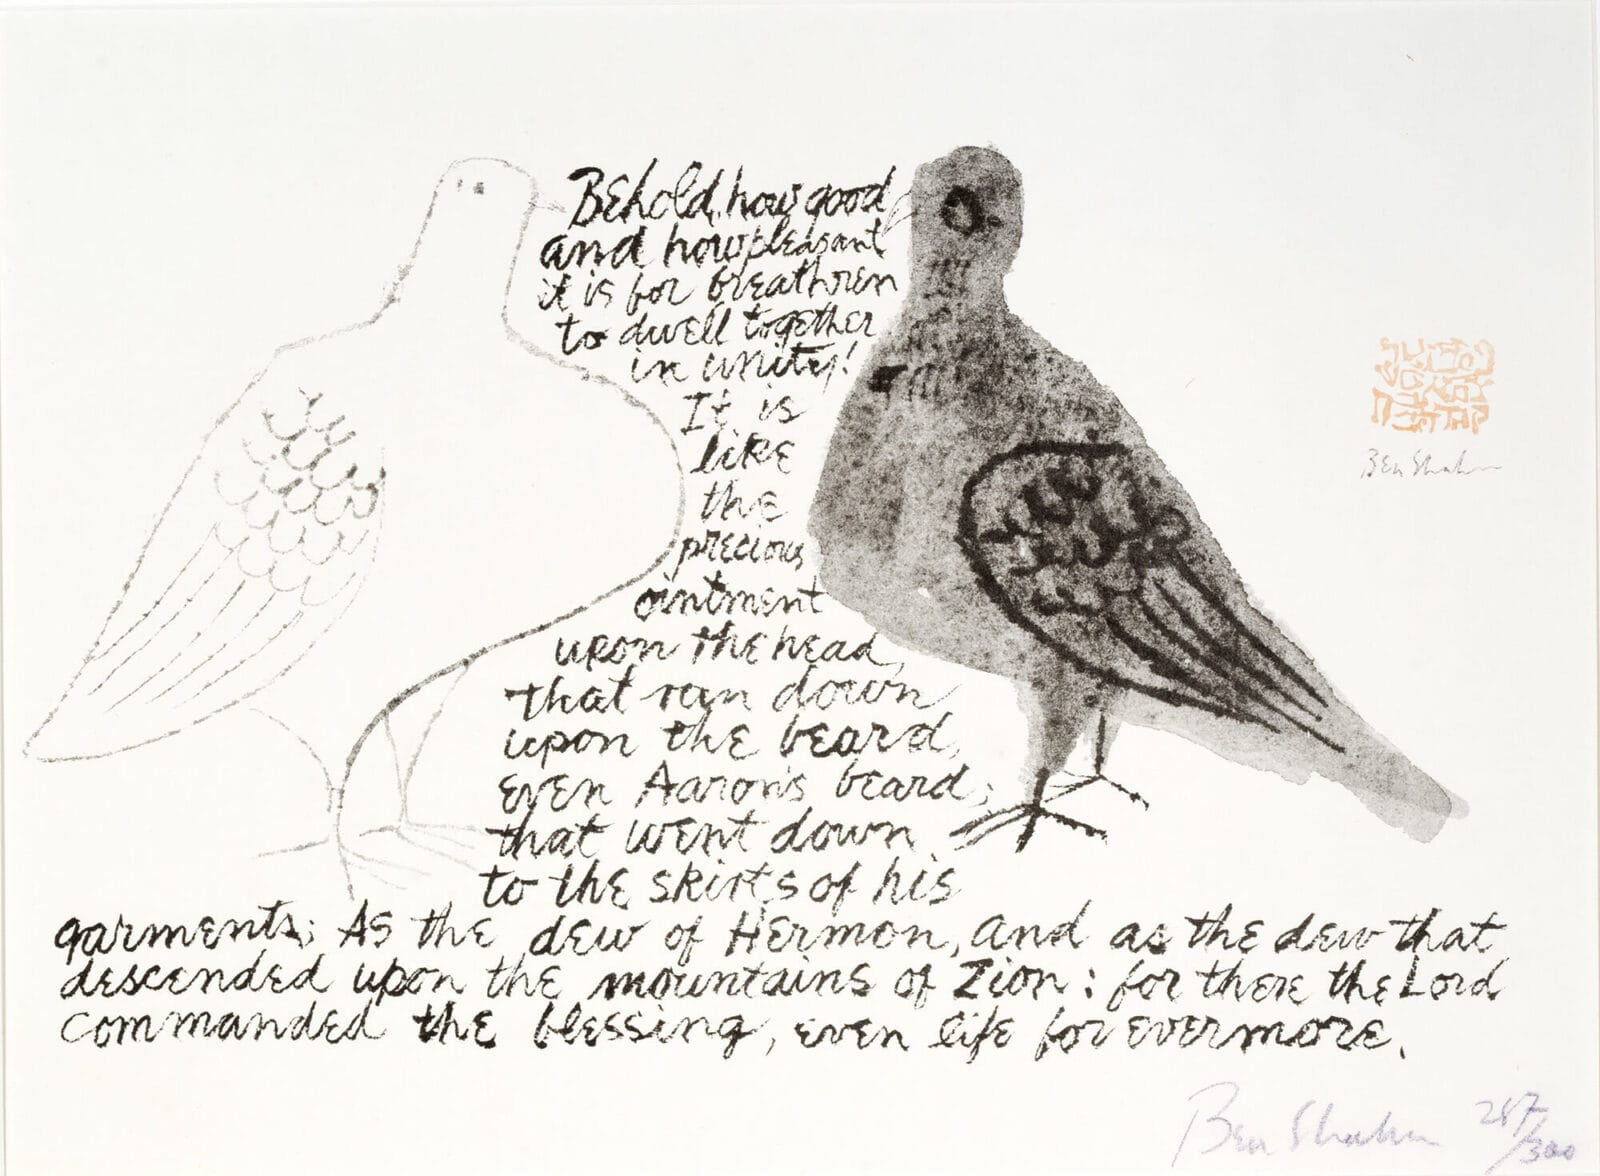 Behold, how good
and how pleasant
it is for breathren
to dwell together
in unity!
It is
like
the
precious
ointment
upon the head,
that ran down
upon the beard,
even Aaron's beard;
that went down
to the skirts of his
garments; As the dew of Hermon, and as the dew that
descended upon the mountains of Zion: for there the Lord
commanded the blessing, even life for evermore.
Ben Shahn
Ben Shahn 287/300